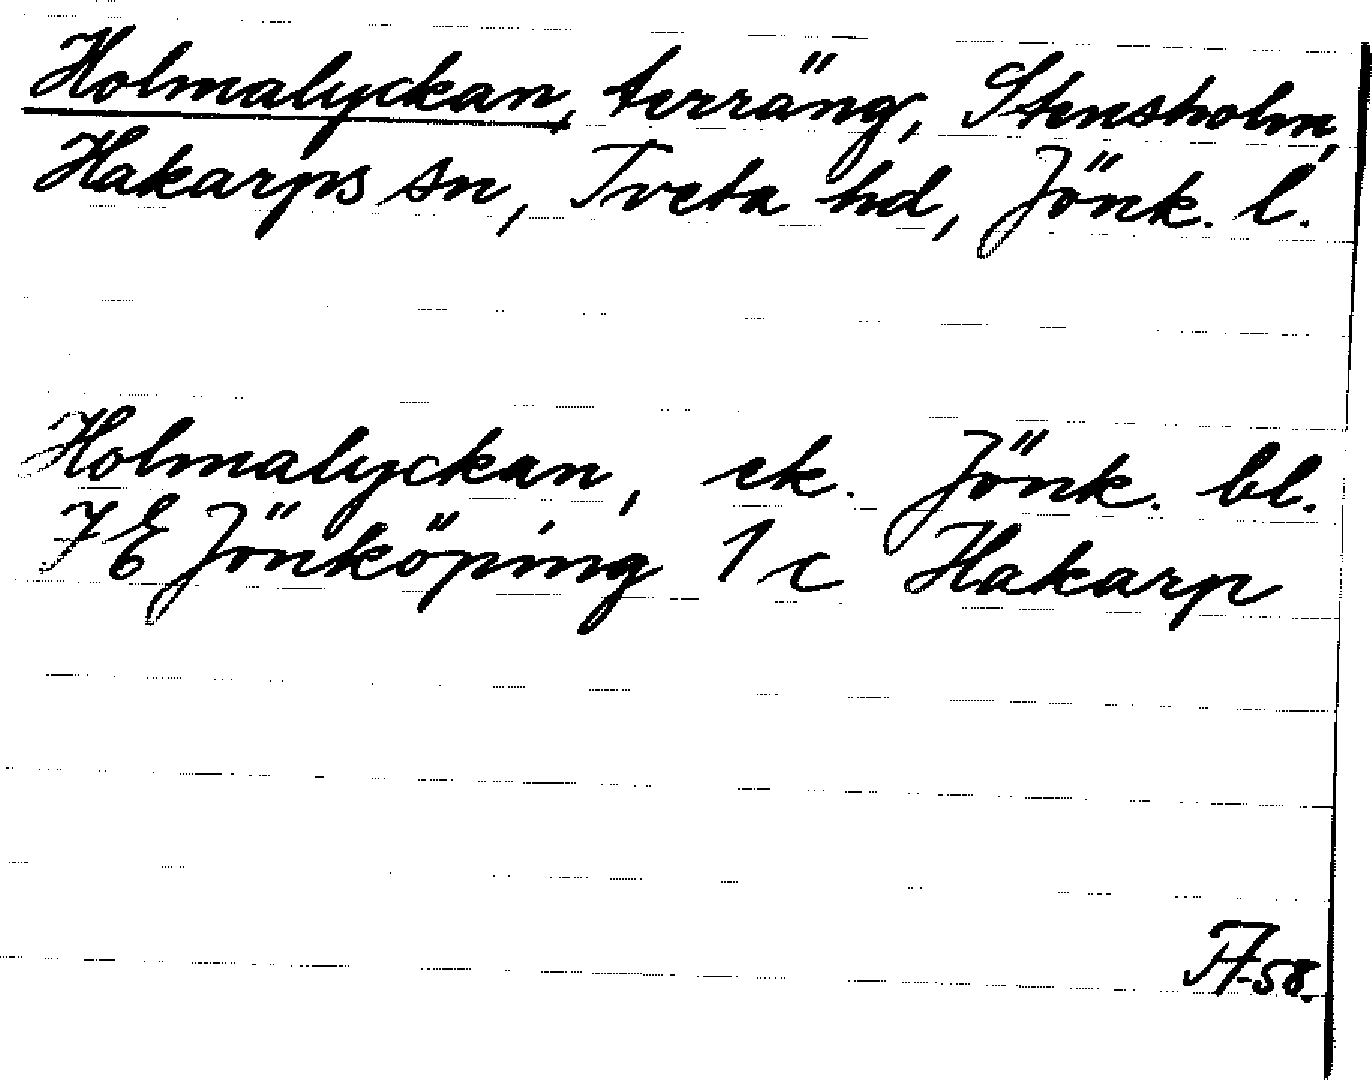 Holmalyckan, terräng, Stensholm,
Hakarps sn, Tveta hd, Jönk. l.
Holmalyckan, ek. Jönk. bl.
7E Jönköping 1c Hakarp